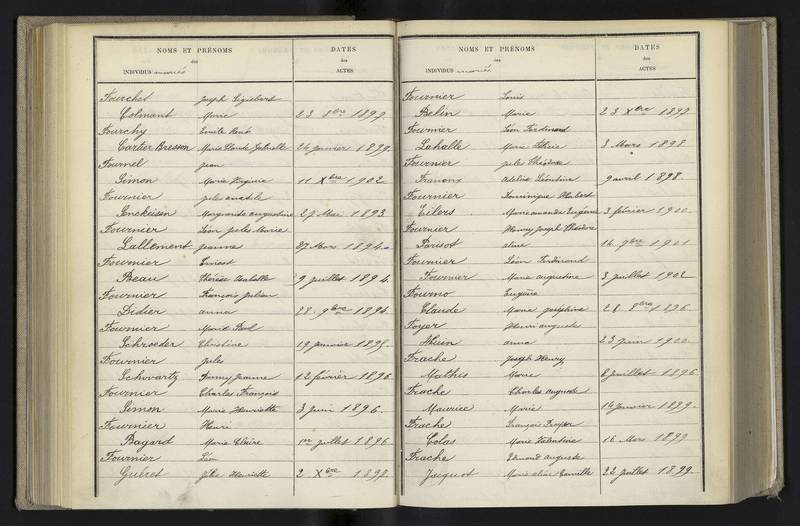 NOMS ET PRÉNOMS
des
INDIVIDUS mariés
DATES
des
ACTES
Fourchet Joseph
Colmant Marie 23 8bre 1899
Fourchy Emile René
Cartier Bresson Marie Claude Gabrielle 24 janvier 1899
Fournel Jean
Simon Marie Virginie 11 Xbre 1902
Fournier Jules
Marguerite augustine 27 Mai 1893
Fournier Léon Jules Marie
Lallement Jeanne 27 Mars 1894
Fournier Ernest
Beau Thérèse 9 juillet 1894
Fournier François Julien
Didier anna 28 9bre 1894
Fournier Marie Paul
Schroeder Christine 19 janvier 1895
Fournier Jules
Schwartz Fanny Jeanne 12 février 1896
Fournier Charles François
Simon Marie Henriette 3 juin 1896
Fournier Henri
Bagard Marie Claire 1er juillet 1896
Fournier Léon
Guéret Henriette 2 Xbre 1899
NOMS ET PRÉNOMS
des
INDIVIDUS mariés
DATES
des
ACTES
Fournier Louis
Belin Marie 23 Xbre 1899
Fournier Léon Ferdinand
Lahalle Marie 8 Mars 1898
Fournier Jules Théodore
Adeline Léontine 9 avril 1898
Fournier Dominique Hubert
Eilers Marie amanda Eugénie 3 février 1900
Fournier Henry Joseph Théodore
Parisot aline 16 9bre 1901
Fournier Léon Ferdinand
Fournier Marie augustine 3 juillet 1902
Eugène
Claude Marie Joséphine 28 8bre 1896
Foyer Henri auguste
anna 23 juin 1900
Frache Joseph Henry
Mathis Marie 8 juillet 1896
Frache Charles auguste
Maurice Marie 14 janvier 1899
Frache François Prosper
Colas Marie Valentine 16 Mars 1899
Frache Edmond auguste
Jacquot Marie aline Camille 22 juillet 1899